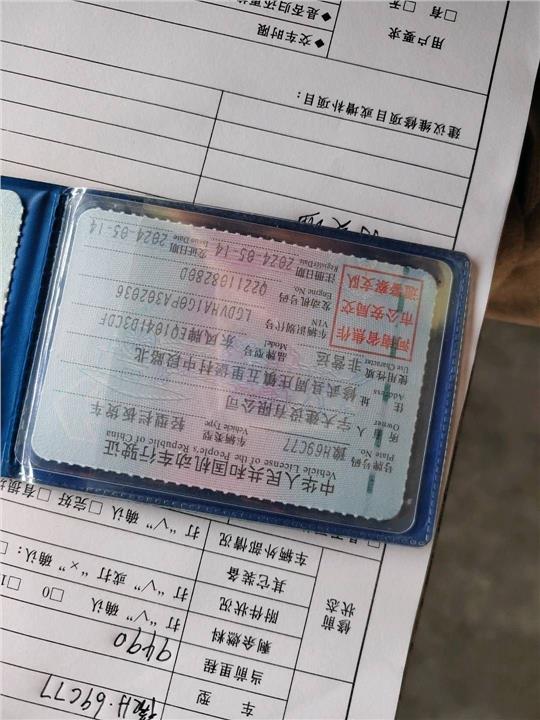 豫H·69C77
车 型
当前里程
9490
剩余燃料
打 “√” 确认 □0 □1
附件状况
打 “√” 确认
其它装备
打 “√” 或打 “×” 确认：
车辆外部情况
打 “√” 确认 □完好 □有损
修前状态
中华人民共和国机动车行驶证
Vehicle License of the People's Republic of China
号牌号码 豫H69C77 车辆类型 轻型栏板货车
Plate No. Vehicle Type
所有人 宇天建设有限公司
Owner
住址 修武县周庄镇五里堡村中段路北
Address
使用性质 非营运 品牌型号 东风牌EQ1041D3CDF
Use Character Model
河南省焦作市公安局交通警察支队
车辆识别代号 LGDVHA1G0PA302036
VIN
发动机号码 Q221108280D
Engine No.
注册日期 2024-05-14 发证日期 2024-05-14
Register Date Issue Date
建议维修项目或增补项目：
◆ 交车时限
◆ 是否归还更换
用户要求
□有 □无